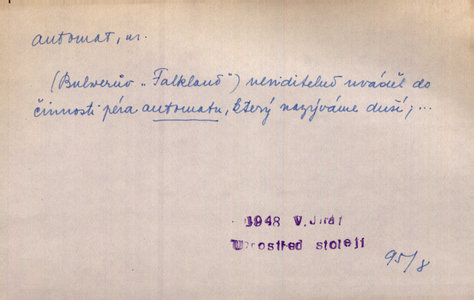 automat, m.
(Bulwerův „Falkland") neviditelně uváděl do
činnosti péra automatu, který nazýváme duší; ...
1948 V. Jirát
Uprostřed století
95/8